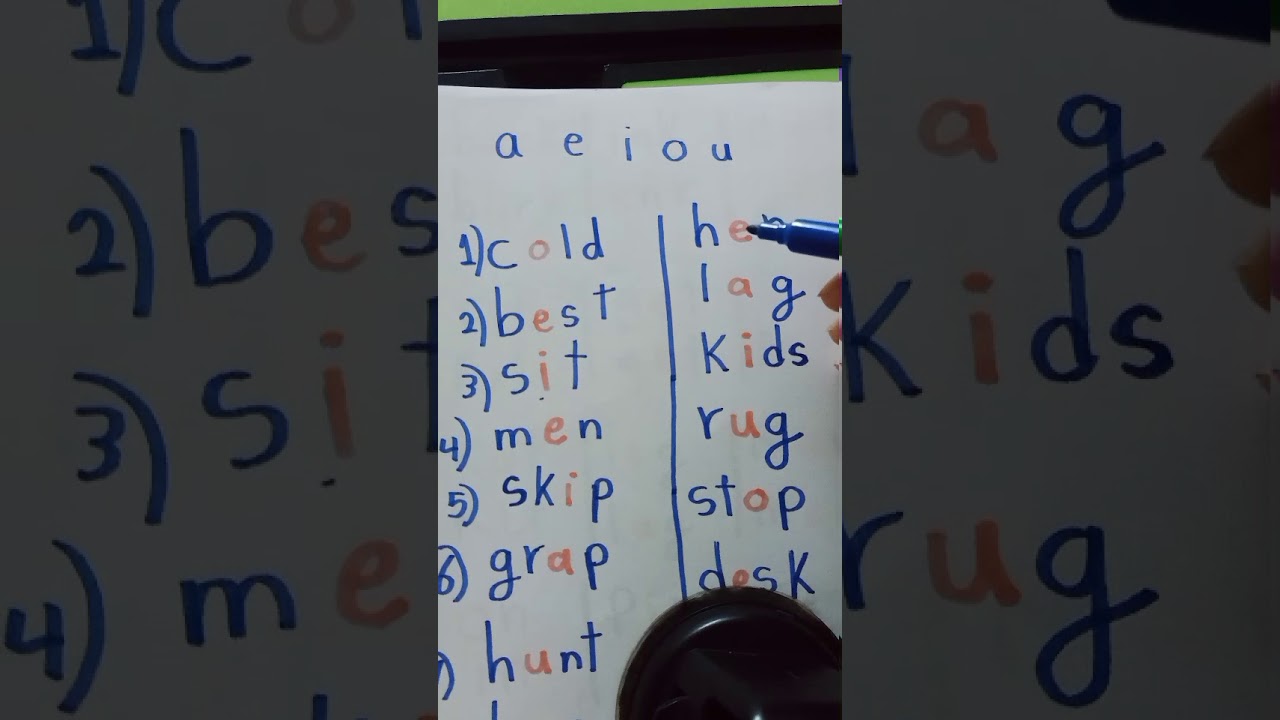 a e i o u
1) cold
2) best
3) sit
4) men
5) skip
6) grap
) hunt
hen
lag
kids
rug
stop
desk